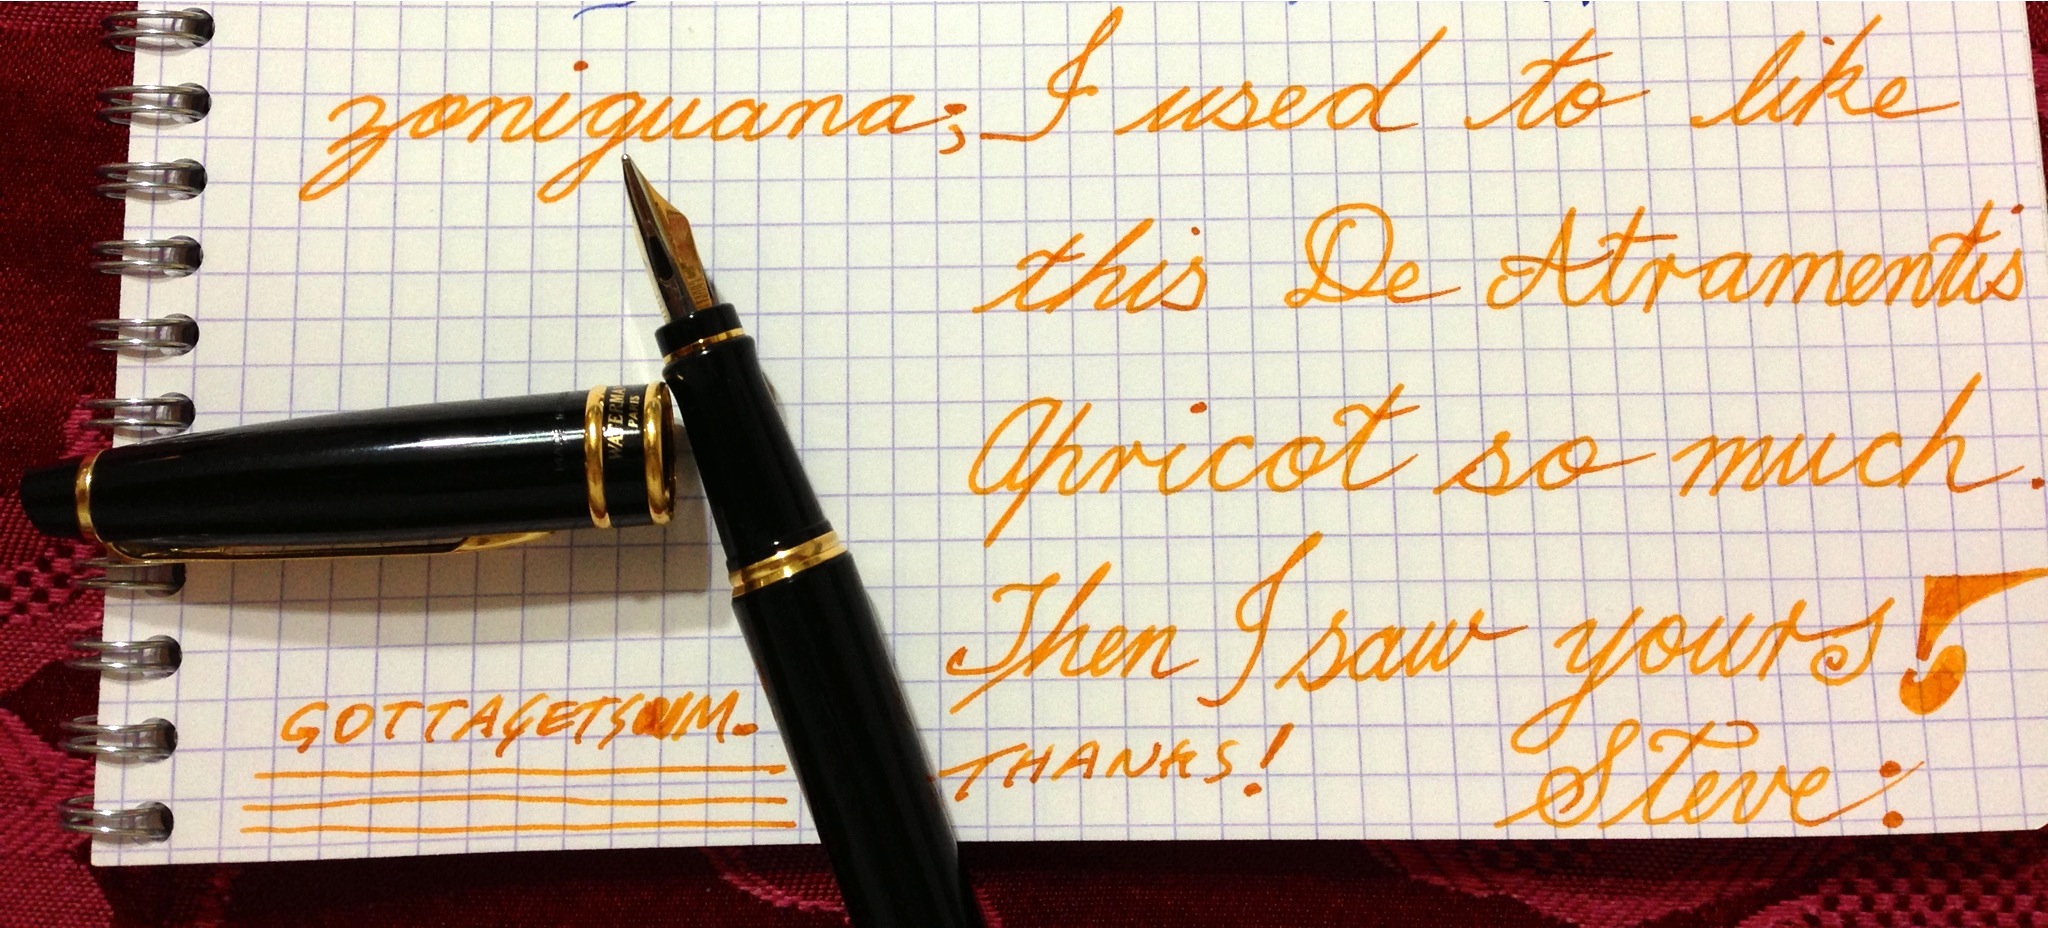 zoniguana; I used to like
this De Atramentis
Apricot so much.
Then I saw yours!
GOTTAGETSUM.
THANKS!
Steve:
WATERMAN
PARIS